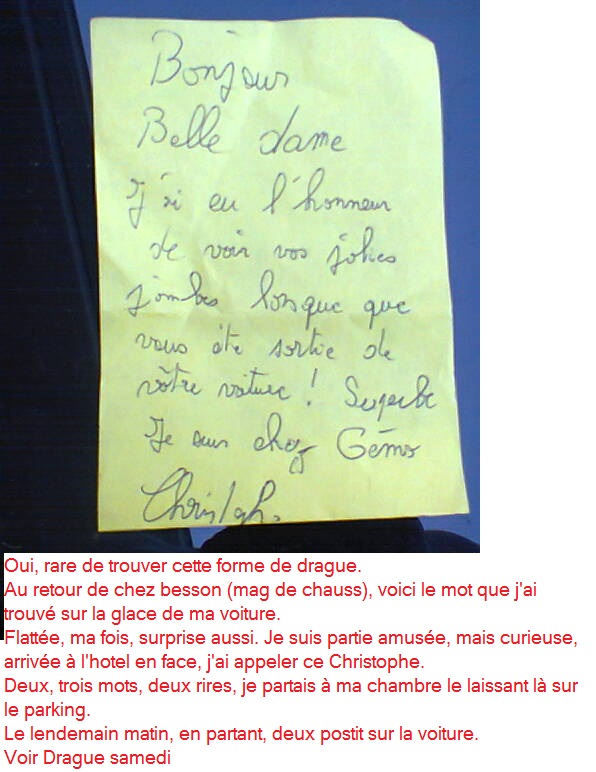 Bonjour
Belle dame
J'ai eu l'honneur
de voir vos jolies
jambes lorsque que
vous ète sortie de
vôtre voiture ! Superbe
Je suis chez Gémo
Christoph.
Oui, rare de trouver cette forme de drague.
Au retour de chez besson (mag de chauss), voici le mot que j'ai
trouvé sur la glace de ma voiture.
Flattée, ma fois, surprise aussi. Je suis partie amusée, mais curieuse,
arrivée à l'hotel en face, j'ai appeler ce Christophe.
Deux, trois mots, deux rires, je partais à ma chambre le laissant là sur
le parking.
Le lendemain matin, en partant, deux postit sur la voiture.
Voir Drague samedi